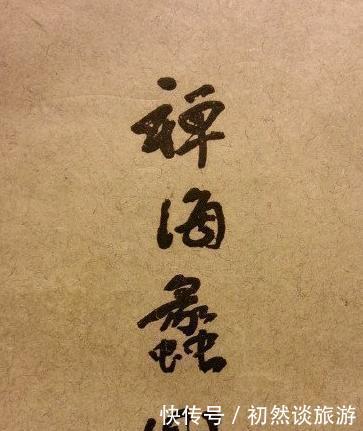 禅海蠡
快传号/初然谈旅游